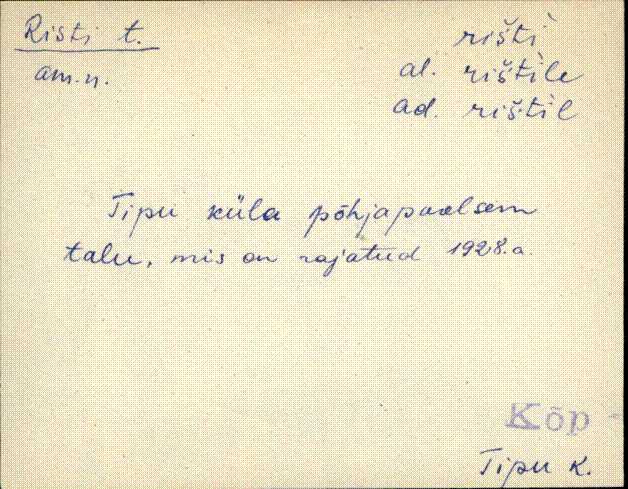 Risti t.
am.n.
rišti`
al. rišti`le
ad. rišti`l
Tipu küla põhjapoolsem
talu, mis on rajatud 1928.a.
Kõp -
Tipu k.